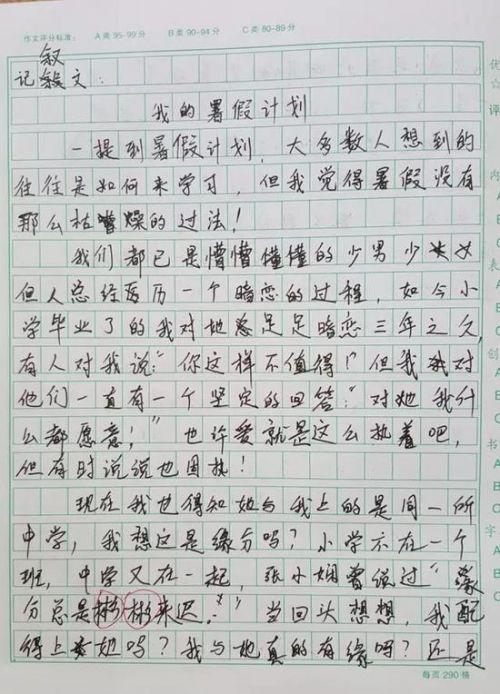 作文评分标准： A类 95-99分 B类 90-94分 C类 80-89分
叙
记文：
我的暑假计划
一提到暑假计划，大多数人想到的
往往是如何来学习，但我觉得暑假没有
那么枯燥的过法！
我们都已是懵懵懂懂的少男少女
但人总经历一个暗恋的过程，如今小
学毕业了的我对她足足暗恋三年之久，
有人对我说："你这样不值得！"但我对
他们一直有一个坚定的回答："对她我什
么都愿意！"也许爱就是这么执着吧，
但有时说说也固执！
现在我也得知她与我上的是同一所
中学，我想这是缘分吗？小学不在一个
班，中学又在一起，张小娴曾说过"缘
分总是彬彬来迟."当回头想想，我配
得上她吗？我与她真的有缘吗？还是
每页290格
优
☆
评
内
A
B
C
表
A
B
创
A
书
A
B
C
字
A
B